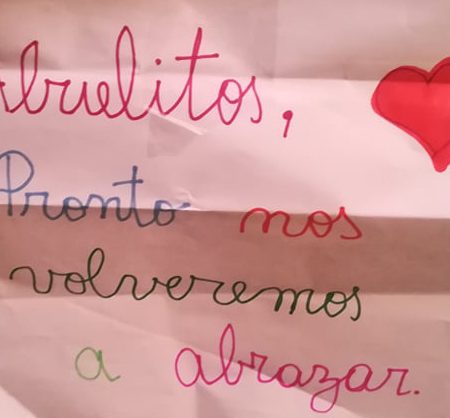 Abuelitos,
Pronto nos
volveremos
a abrazar.